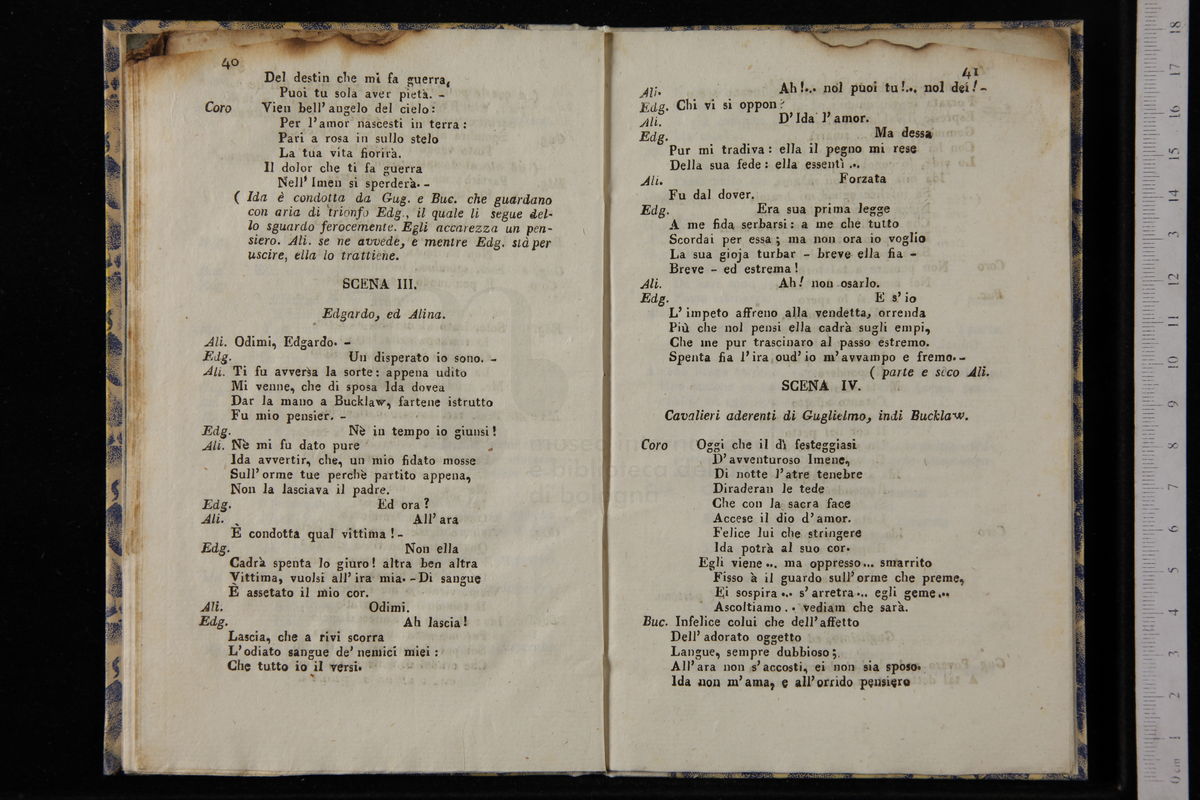 40
Del destin che mi fa guerra,
Puoi tu sola aver pietà. -
Coro Vien bell' angelo del cielo:
Per l'amor nascesti in terra:
Pari a rosa in sullo stelo
La tua vita fiorirà.
Il dolor che ti fa guerra
Nell' Imen si sperderà. -
( Ida è condotta da Gug. e Buc. che guardano
con aria di trionfo Edg., il quale li segue del-
lo sguardo ferocemente. Egli accarezza un pen-
siero. Ali. se ne avvede, e mentre Edg. stà per
uscire, ella lo trattiene.
SCENA III.
Edgardo, ed Alina.
Ali. Odimi, Edgardo. -
Edg. Un disperato io sono. -
Ali. Ti fu avversa la sorte: appena udito
Mi venne, che di sposa Ida dovea
Dar la mano a Bucklaw, fartene istrutto
Fu mio pensier. -
Edg. Nè in tempo io giunsi!
Ali. Nè mi fu dato pure
Ida avvertir, che, un mio fidato mosse
Sull' orme tue perchè partito appena,
Non la lasciava il padre.
Edg. Ed ora?
Ali. All' ara
È condotta qual vittima! -
Edg. Non ella
Cadrà spenta lo giuro! altra ben altra
Vittima, vuolsi all' ira mia. - Di sangue
È assetato il mio cor.
Ali. Odimi.
Edg. Ah lascia!
Lascia, che a rivi scorra
L'odiato sangue de' nemici miei:
Che tutto io il versi.
41
Ali. Ah!... nol puoi tu!... nol dei! -
Edg. Chi vi si oppon?
Ali. D' Ida l' amor.
Edg. Ma dessa
Pur mi tradiva: ella il pegno mi rese
Della sua fede: ella essentì ...
Ali. Forzata
Fu dal dover.
Edg. Era sua prima legge
A me fida serbarsi: a me che tutto
Scordai per essa; ma non ora io voglio
La sua gioja turbar - breve ella fia -
Breve - ed estrema!
Ali. Ah! non osarlo.
Edg. E s' io
L' impeto affreno alla vendetta, orrenda
Più che nol pensi ella cadrà sugli empi,
Che me pur trascinaro al passo estremo.
Spenta fia l'ira oud' io m' avvampo e fremo. -
( parte e seco Ali.
SCENA IV.
Cavalieri aderenti di Guglielmo, indi Bucklaw.
Coro Oggi che il dì festeggiasi
D' avventuroso Imene,
Di notte l'atre tenebre
Diraderan le tede
Che con la sacra face
Accese il dio d' amor.
Felice lui che stringere
Ida potrà al suo cor.
Egli viene... ma oppresso... smarrito
Fisso à il guardo sull' orme che preme,
Ei sospira... s' arretra... egli geme...
Ascoltiamo.. vediam che sarà.
Buc. Infelice colui che dell' affetto
Dell' adorato oggetto
Langue, sempre dubbioso;
All' ara non s' accosti, ei non sia sposo.
Ida non m' ama, e all' orrido pensiero